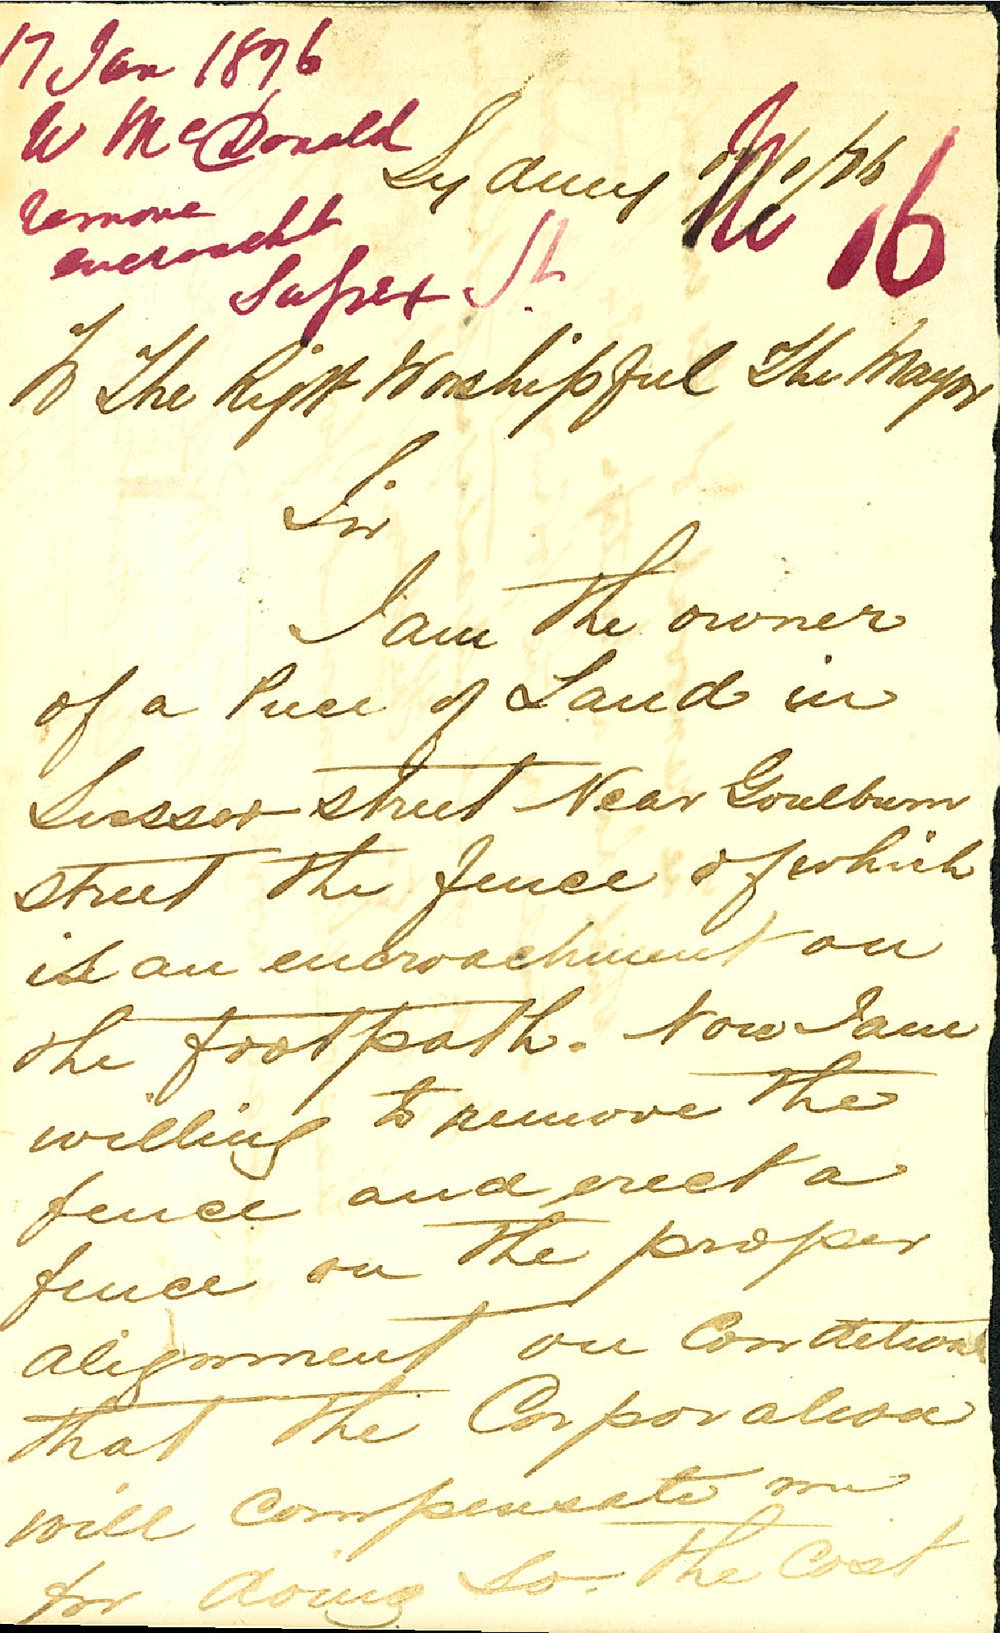 17 Jan 1876
W McDonald
remove
encroacht
Sussex St.
No 16
Sydney
To The Right Worshipful The Mayor
Sir
I am the owner
of a Piece of Land in
Sussex street Near Goulburn
street the fence of which
is an encroachment on
the footpath. Now I am
willing to remove the
fence and erect a
fence on the proper
alignment on Condition
that the Corporation
will compensate me
for doing so. The cost